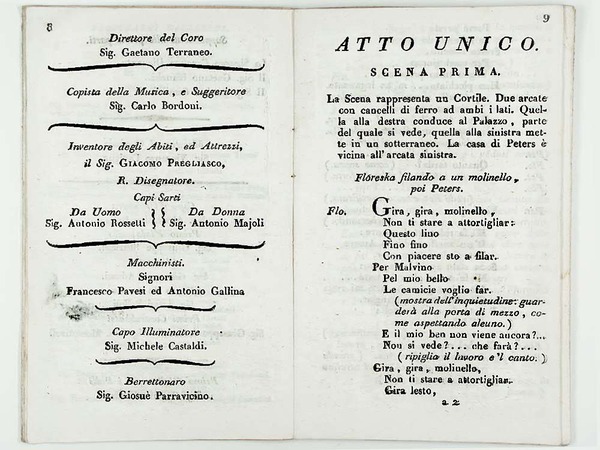 8
Direttore del Coro
Sig. Gaetano Terraneo.
Copista della Musica, e Suggeritore
Sig. Carlo Bordoni.
Inventore degli Abiti, ed Attrezzi,
il Sig. GIACOMO PREGLIASCO,
R. Disegnatore.
Capi Sarti
Da Uomo Da Donna
Sig. Antonio Rossetti Sig. Antonio Majoli
Macchinisti.
Signori
Francesco Pavesi ed Antonio Gallina
Capo Illuminatore
Sig. Michele Castaldi.
Berrettonaro
Sig. Giosuè Parravicino.
9
ATTO UNICO.
SCENA PRIMA.
La Scena rappresenta un Cortile. Due arcate
con cancelli di ferro ad ambi i lati. Quel-
la alla destra conduce al Palazzo, parte
del quale si vede, quella alla sinistra met-
te in un sotterraneo. La casa di Peters è
vicina all'arcata sinistra.
Floreska filando a un molinello,
poi Peters.
Flo. Gira, gira, molinello,
Non ti stare a attortigliar:
Questo lino
Fino fino
Con piacere sto a filar.
Per Malvino
Pel mio bello
Le camicie voglio far.
(mostra dell'inquietudine: guar-
derà alla porta di mezzo, co-
me aspettando alcuno.)
E il mio ben non viene ancora?...
Non si vede?... che farà?...
(ripiglia il lavoro e'l canto.)
Gira, gira, molinello,
Non ti stare a attortigliar.
Gira lesto,
a 2